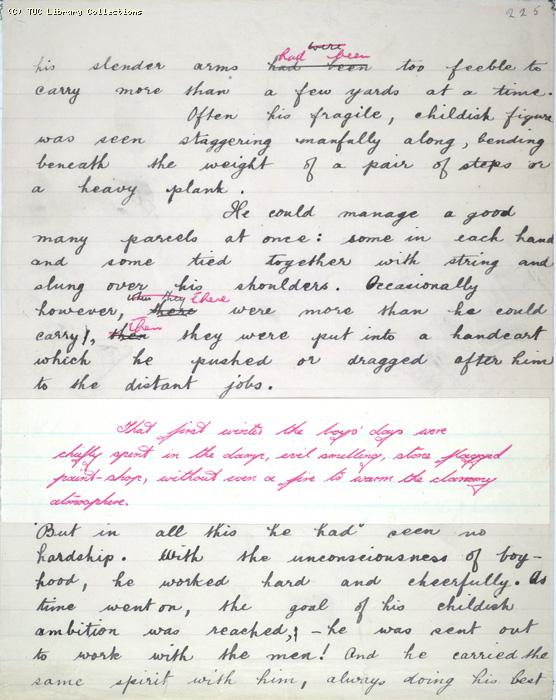 (C) TUC Library Collections
225
were
had been
his slender arms had been too feeble to
carry more than a few yards at a time.
Often his fragile, childish figure
was seen staggering manfully along, bending
beneath the weight of a pair of steps or
a heavy plank.
He could manage a good
many parcels at once: some in each hand
and some tied together with string and
slung over his shoulders. Occasionally
when they there
however, there were more than he could
Then
carry, then they were put into a handcart
which he pushed or dragged after him
to the distant jobs.
That first winter the boys' days were
chiefly spent in the damp, evil smelling, stone flagged
paint-shop, without even a fire to warm the clammy
atmosphere.
But in all this he had seen no
hardship. With the unconsciousness of boy-
hood, he worked hard and cheerfully. As
time went on, the goal of his childish
ambition was reached, - he was sent out
to work with the men! And he carried the
same spirit with him, always doing his best